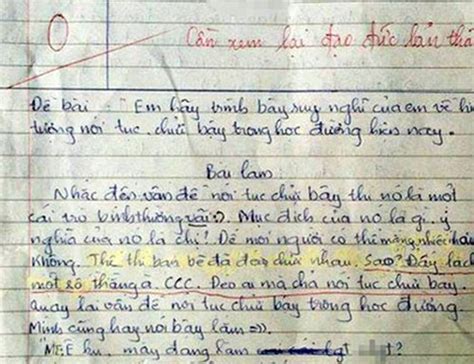 0
Cần xem lại đạo đức bản thâ
Đề bài: "Em hãy trình bày suy nghĩ của em về hi
tượng nói tục, chửi bậy trong học đường hiện nay.
Bài làm
Nhắc đến vấn đề nói tục chửi bậy thì nó là một
cái trò bình thường vãi:). Mục đích của nó là gì. ý
nghĩa của nó là chi? Để mọi người có thể mắng nhiếc hay
không. Thế thì bạn bè đã đéo chửi nhau. Sao? Đấy là c
một số thằng à. CCC. Đéo ai mà chả nói tục chửi bậy.
quay lại vấn đề nói tục chửi bậy trong học đường.
Mình cũng hay nói bậy lắm =)).
mày đang làm